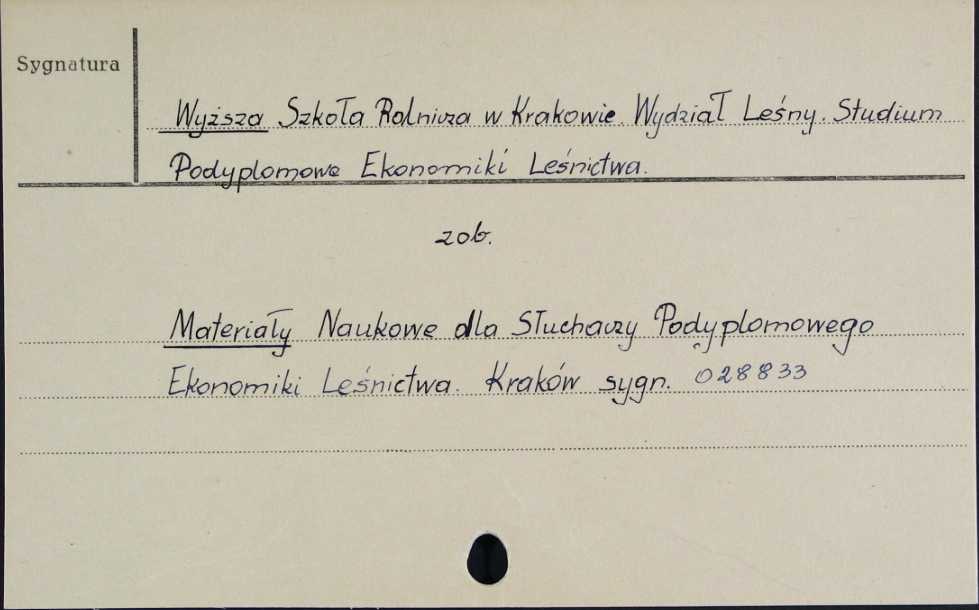 Sygnatura
Wyższa Szkoła Rolnicza w Krakowie. Wydział Leśny. Studium
Podyplomowe Ekonomiki Leśnictwa.
zob.
Materiały Naukowe dla Słuchaczy Podyplomowego
Ekonomiki Leśnictwa. Kraków sygn. 028833